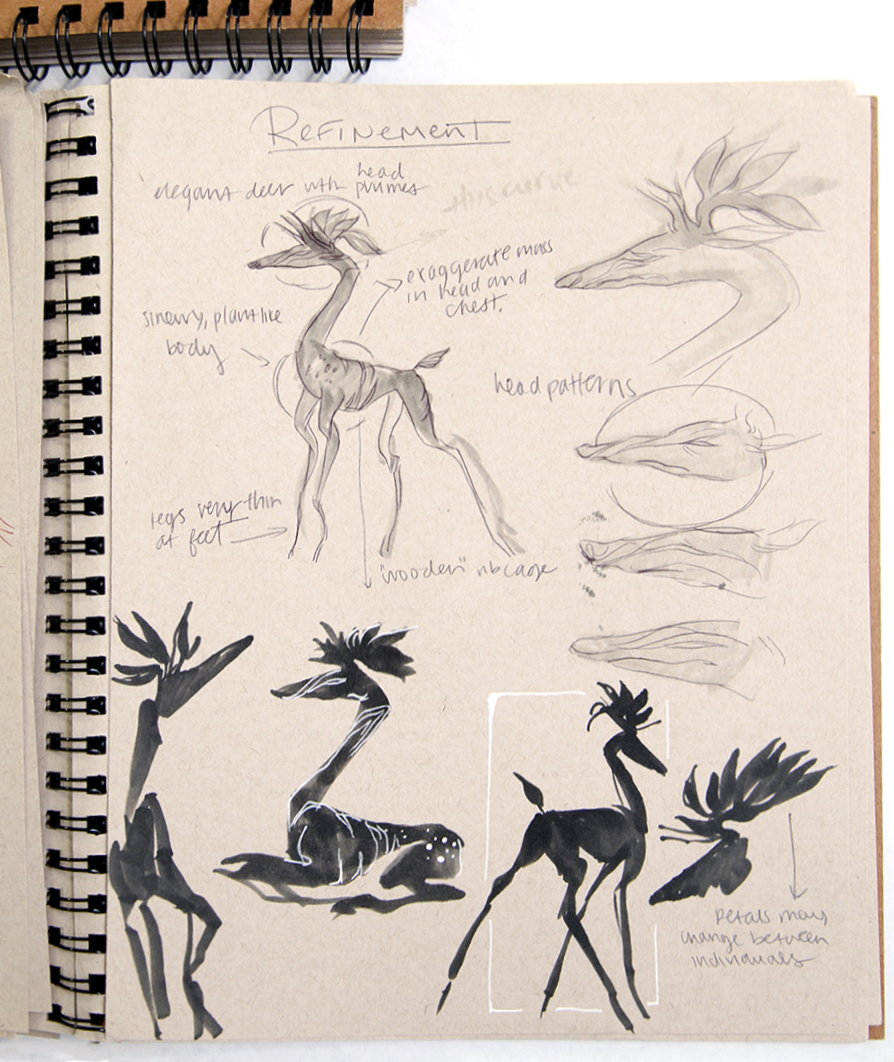 REFINEMENT
elegant deer with head plumes
this curve
exaggerate mass
in head and
chest.
sinewy, plantlike
body
head patterns
legs very thin
at feet
"wooden" ribcage
Petals may
change between
individuals